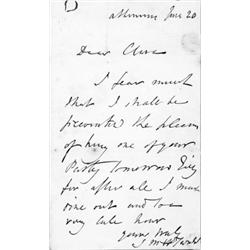 June 20
Dear Clara
I fear much
that I shall be
prevented the pleasure
of being one of your
Party tomorrow Evg
for after all I must
dine out and to a
very late hour
yours truly